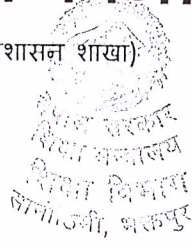 शासन शाखा)
सरकार
शिक्षा मन्त्रालय
शिक्षा विभाग
सानोठिमी, भक्तपुर